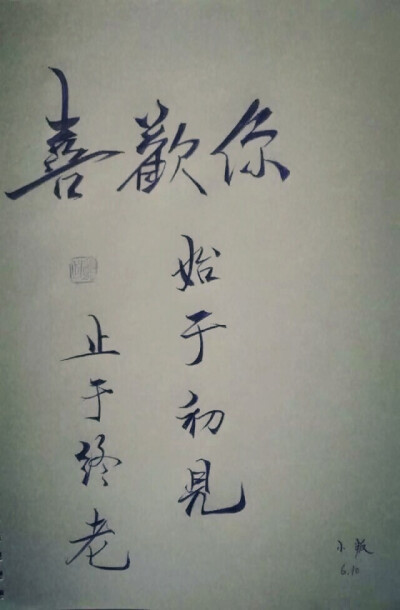 喜歡你
始于初見
止于終老
小
6.10